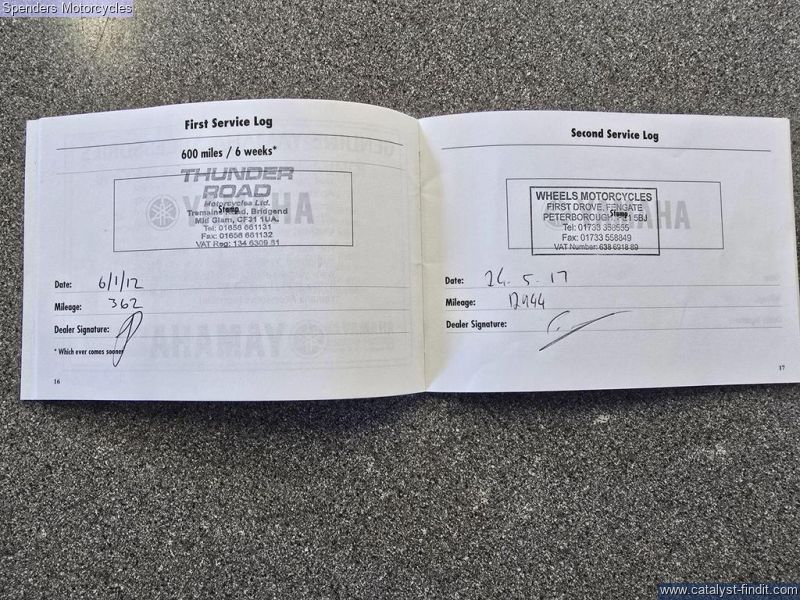 Spenders Motorcycles
First Service Log
600 miles / 6 weeks*
THUNDER
ROAD
Motorcycles Ltd.
Stamp
Tremains Road, Bridgend
Mid Glam, CF31 1UA.
Tel: 01656 661131
Fax: 01656 661132
VAT Reg: 134 6309 81
Date: 6/1/12
Mileage: 362
Dealer Signature:
* Which ever comes sooner
16
Second Service Log
WHEELS MOTORCYCLES
FIRST DROVE, FENGATE
Stamp
PETERBOROUGH, PE1 5BJ
Tel: 01733 358555
Fax: 01733 558849
VAT Number: 638 6918 89
Date: 24.5.17
Mileage:
Dealer Signature:
17
YAMAHA
www.catalyst-findit.com